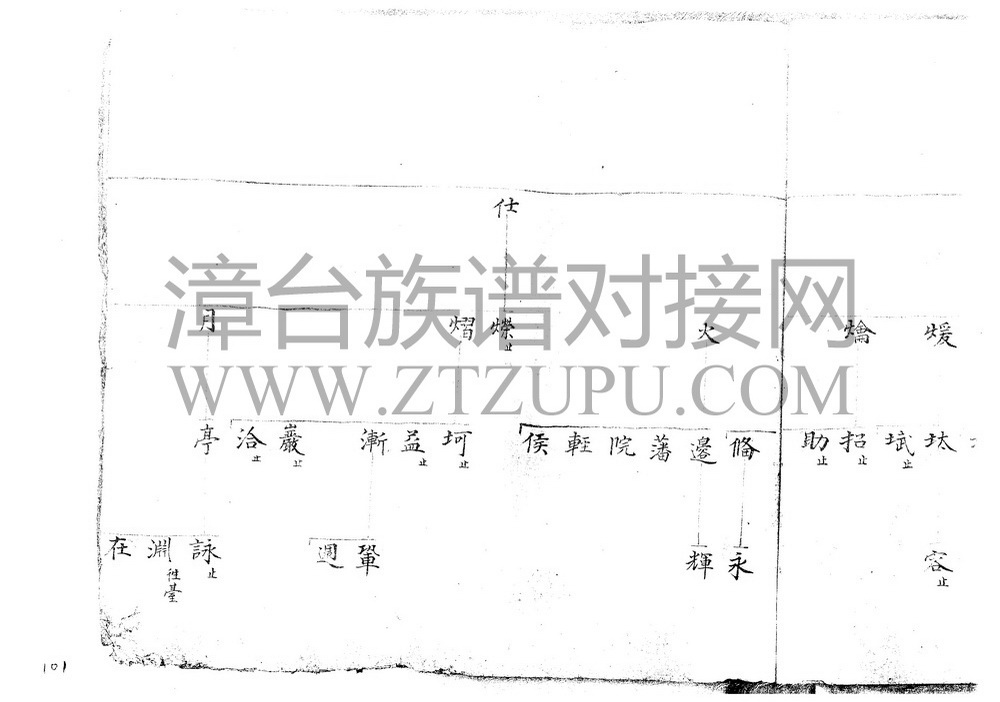 仕
煖 爚 火 爃止 熠 月
坮 㙇止 招止 助止 脩 邊 藩 院 輕 侯 坷止 益止 漸 巖止 洽止 亭
容止 永 輝 鞏 週 詠止 淵往臺 在
漳台族谱对接网
WWW.ZTZUPU.COM
101